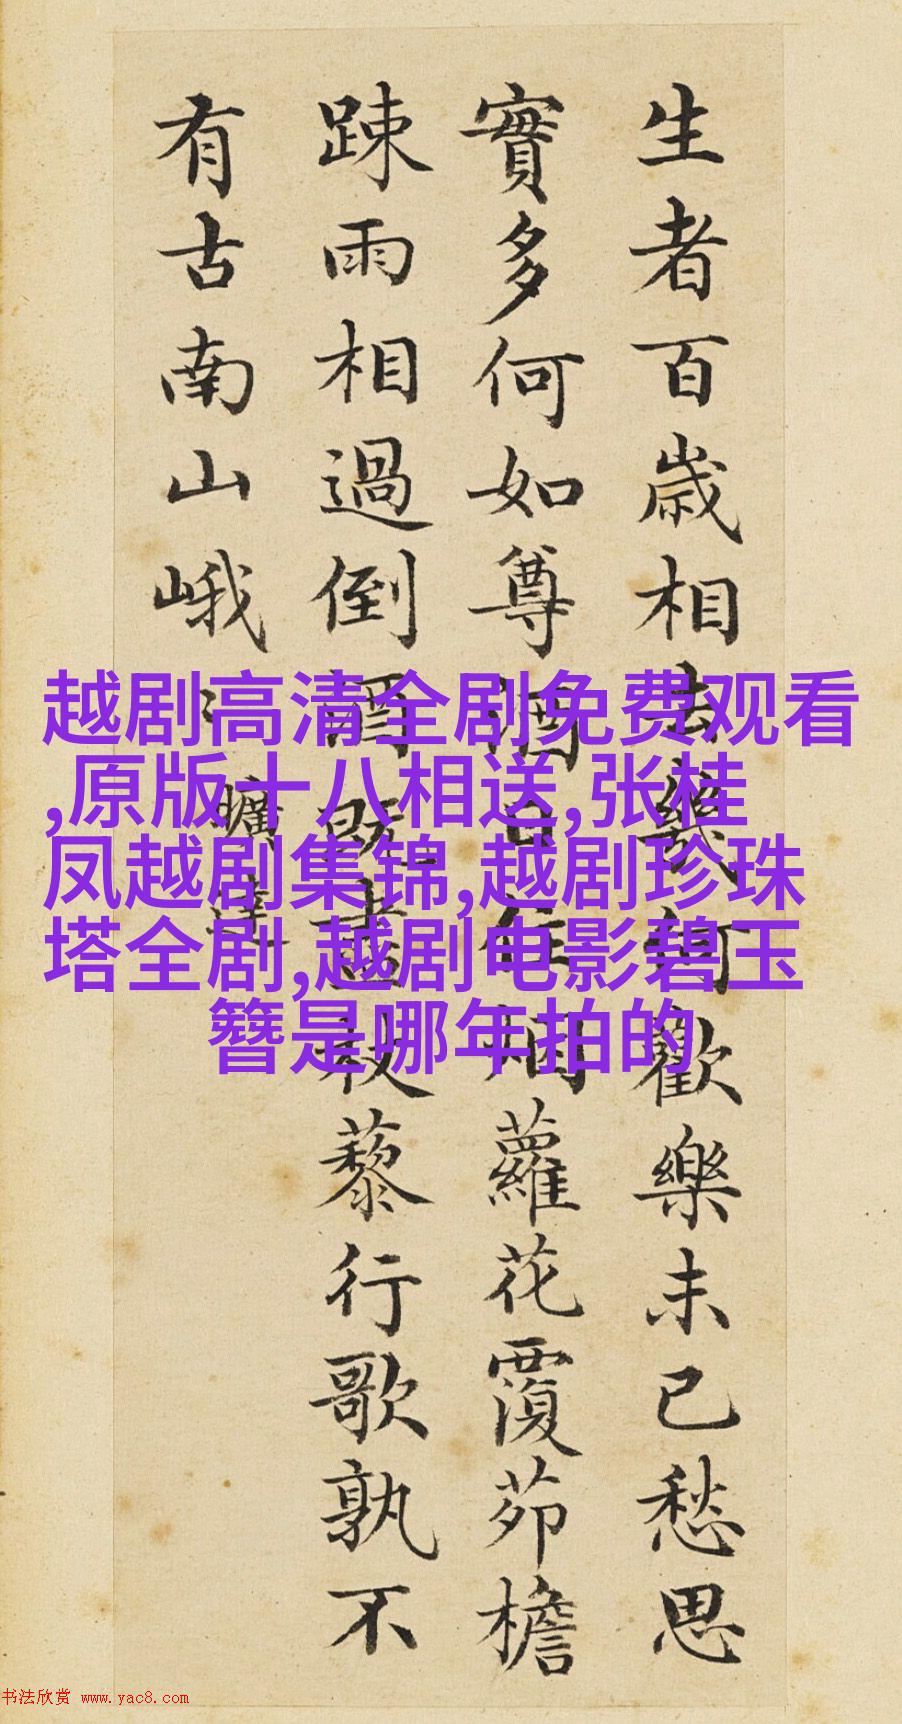 生者百歲相去幾何歡樂未已愁思
實多何如尊酒日往烟蘿花覆茆檐
踈雨相過倒酒既盡杖藜行歌孰不
有古南山峨〻
曠達
越剧高清全剧免费观看
,原版十八相送,张桂
凤越剧集锦,越剧珍珠
塔全剧,越剧电影碧玉
簪是哪年拍的
书法欣赏 www.yac8.com